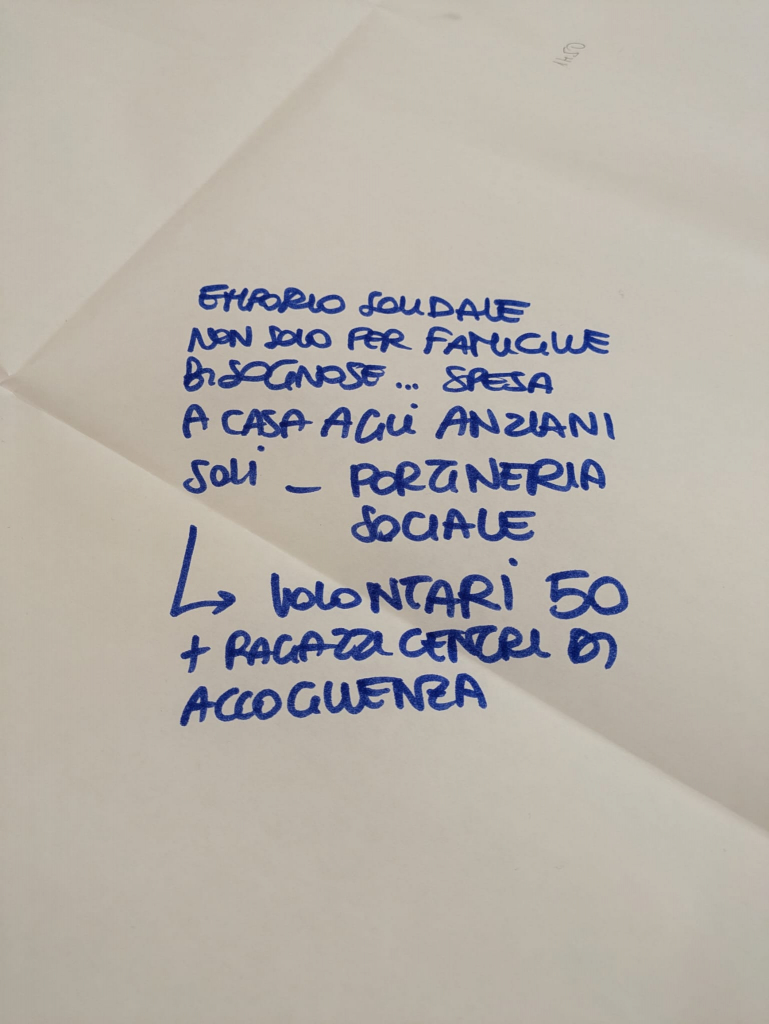 EMPORIO SOLIDALE
NON SOLO PER FAMIGLIE
BISOGNOSE... SPESA
A CASA AGLI ANZIANI
SOLI - PORTINERIA
SOCIALE
↳ VOLONTARI 50
+ RAGAZZI CENTRI DI
ACCOGLIENZA